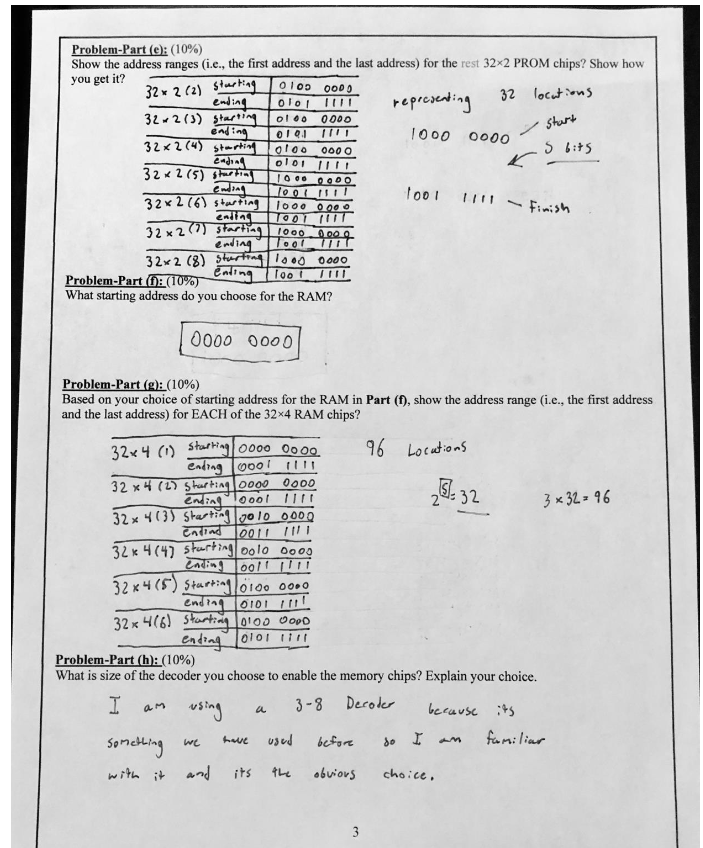 Problem-Part (e): (10%)
Show the address ranges (i.e., the first address and the last address) for the rest 32×2 PROM chips? Show how
you get it?
32 x 2 (2) starting 0100 0000
ending 0101 1111
32 x 2 (3) starting 0100 0000
ending 0101 1111
32 x 2 (4) starting 0100 0000
ending 0101 1111
32 x 2 (5) starting 1000 0000
ending 1001 1111
32 x 2 (6) starting 1000 0000
ending 1001 1111
32 x 2 (7) starting 1000 0000
ending 1001 1111
32 x 2 (8) starting 1000 0000
ending 1001 1111
representing 32 locations
1000 0000 start
5 bits
1001 1111 - Finish
Problem-Part (f): (10%)
What starting address do you choose for the RAM?
0000 0000
Problem-Part (g): (10%)
Based on your choice of starting address for the RAM in Part (f), show the address range (i.e., the first address
and the last address) for EACH of the 32×4 RAM chips?
32 x 4 (1) starting 0000 0000
ending 0001 1111
32 x 4 (2) starting 0000 0000
ending 0001 1111
32 x 4 (3) starting 0010 0000
endind 0011 1111
32 x 4 (4) starting 0010 0000
ending 0011 1111
32 x 4 (5) starting 0100 0000
ending 0101 1111
32 x 4 (6) starting 0100 0000
ending 0101 1111
96 Locations
2^5 = 32 3 x 32 = 96
Problem-Part (h): (10%)
What is size of the decoder you choose to enable the memory chips? Explain your choice.
I am using a 3-8 Decoder because its
something we have used before so I am familiar
with it and its the obvious choice.
3